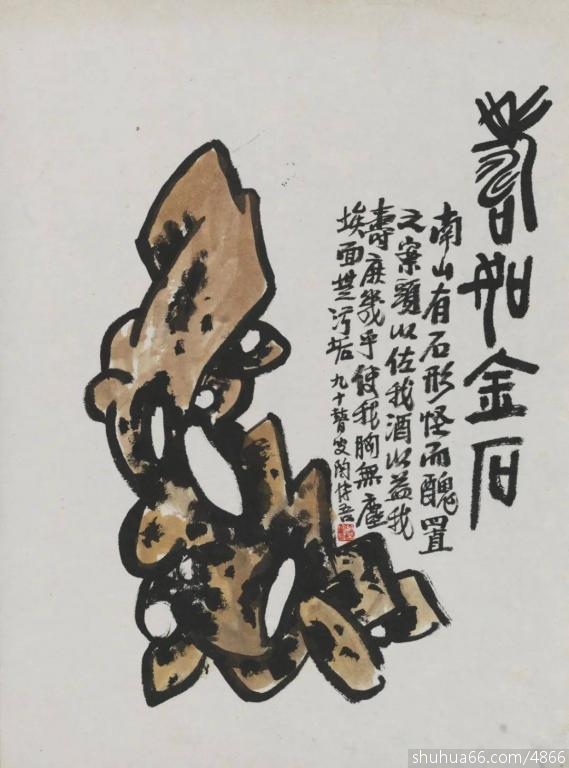 壽如金石
南山有石形怪而醜置
之案頭以佐我酒以益我
壽庶幾乎使我胸無塵
埃面無污垢 九十瞽叟陶博吾
shuhua66.com/4866